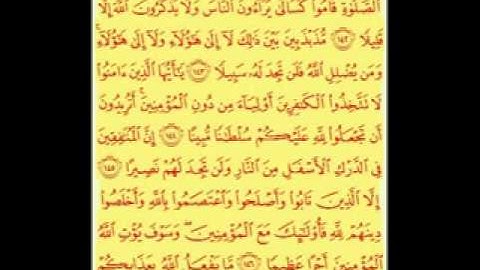 ٱلصَّلَوٰةِ قَامُوا۟ كُسَالَىٰ يُرَآءُونَ ٱلنَّاسَ وَلَا يَذْكُرُونَ ٱللَّهَ إِلَّا
قَلِيلًا ١٤٢ مُّذَبْذَبِينَ بَيْنَ ذَٰلِكَ لَآ إِلَىٰ هَـٰٓؤُلَآءِ وَلَآ إِلَىٰ هَـٰٓؤُلَآءِ
وَمَن يُضْلِلِ ٱللَّهُ فَلَن تَجِدَ لَهُۥ سَبِيلًا ١٤٣ يَـٰٓأَيُّهَا ٱلَّذِينَ ءَامَنُوا۟
لَا تَتَّخِذُوا۟ ٱلْكَـٰفِرِينَ أَوْلِيَآءَ مِن دُونِ ٱلْمُؤْمِنِينَ ۚ أَتُرِيدُونَ
أَن تَجْعَلُوا۟ لِلَّهِ عَلَيْكُمْ سُلْطَـٰنًا مُّبِينًا ١٤٤ إِنَّ ٱلْمُنَـٰفِقِينَ
فِى ٱلدَّرْكِ ٱلْأَسْفَلِ مِنَ ٱلنَّارِ وَلَن تَجِدَ لَهُمْ نَصِيرًا ١٤٥
إِلَّا ٱلَّذِينَ تَابُوا۟ وَأَصْلَحُوا۟ وَٱعْتَصَمُوا۟ بِٱللَّهِ وَأَخْلَصُوا۟
دِينَهُمْ لِلَّهِ فَأُو۟لَـٰٓئِكَ مَعَ ٱلْمُؤْمِنِينَ ۖ وَسَوْفَ يُؤْتِ ٱللَّهُ
ٱلْمُؤْمِنِينَ أَجْرًا عَظِيمًا ١٤٦ مَّا يَفْعَلُ ٱللَّهُ بِعَذَابِكُمْ